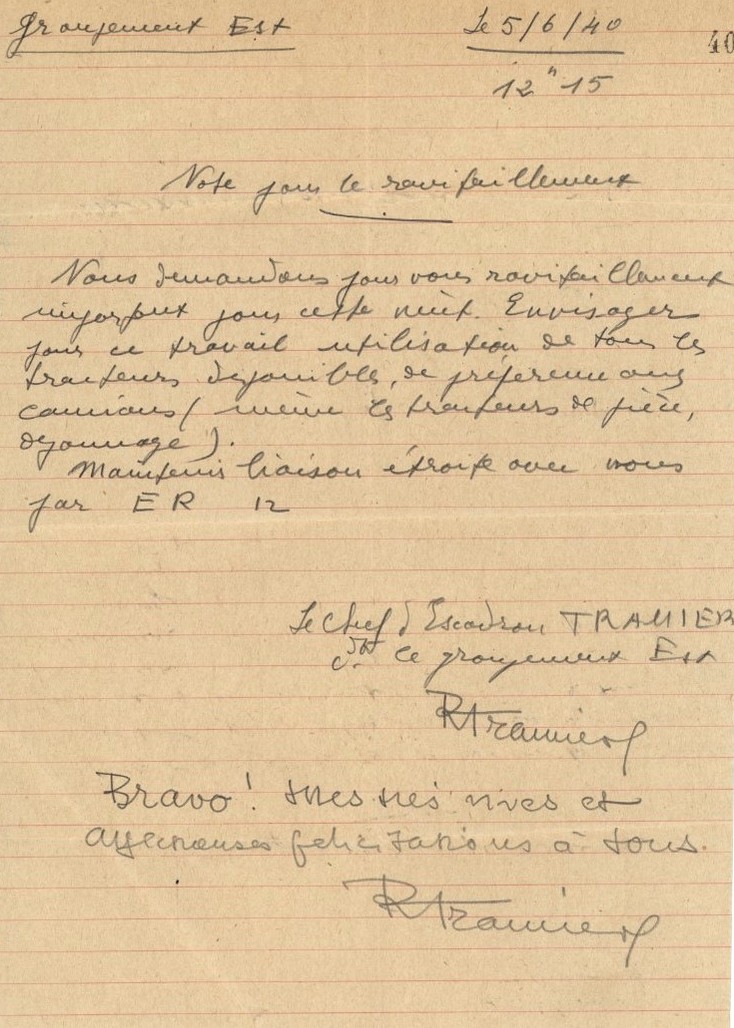 Groupement Est
Le 5/6/40
40
12h 15
Note pour le ravitaillement
Nous demandons pour vous ravitaillement
important pour cette nuit. Envisager
pour ce travail utilisation de tous les
tracteurs disponibles, de préférence aux
camions (même les tracteurs de pièce,
dépannage).
Maintenir liaison étroite avec nous
par ER 12
Le Chef d'Escadron TRAMIER
Cdt le groupement Est
RTramier
Bravo! Mes très vives et
affectueuses felicitations à tous.
RTramier